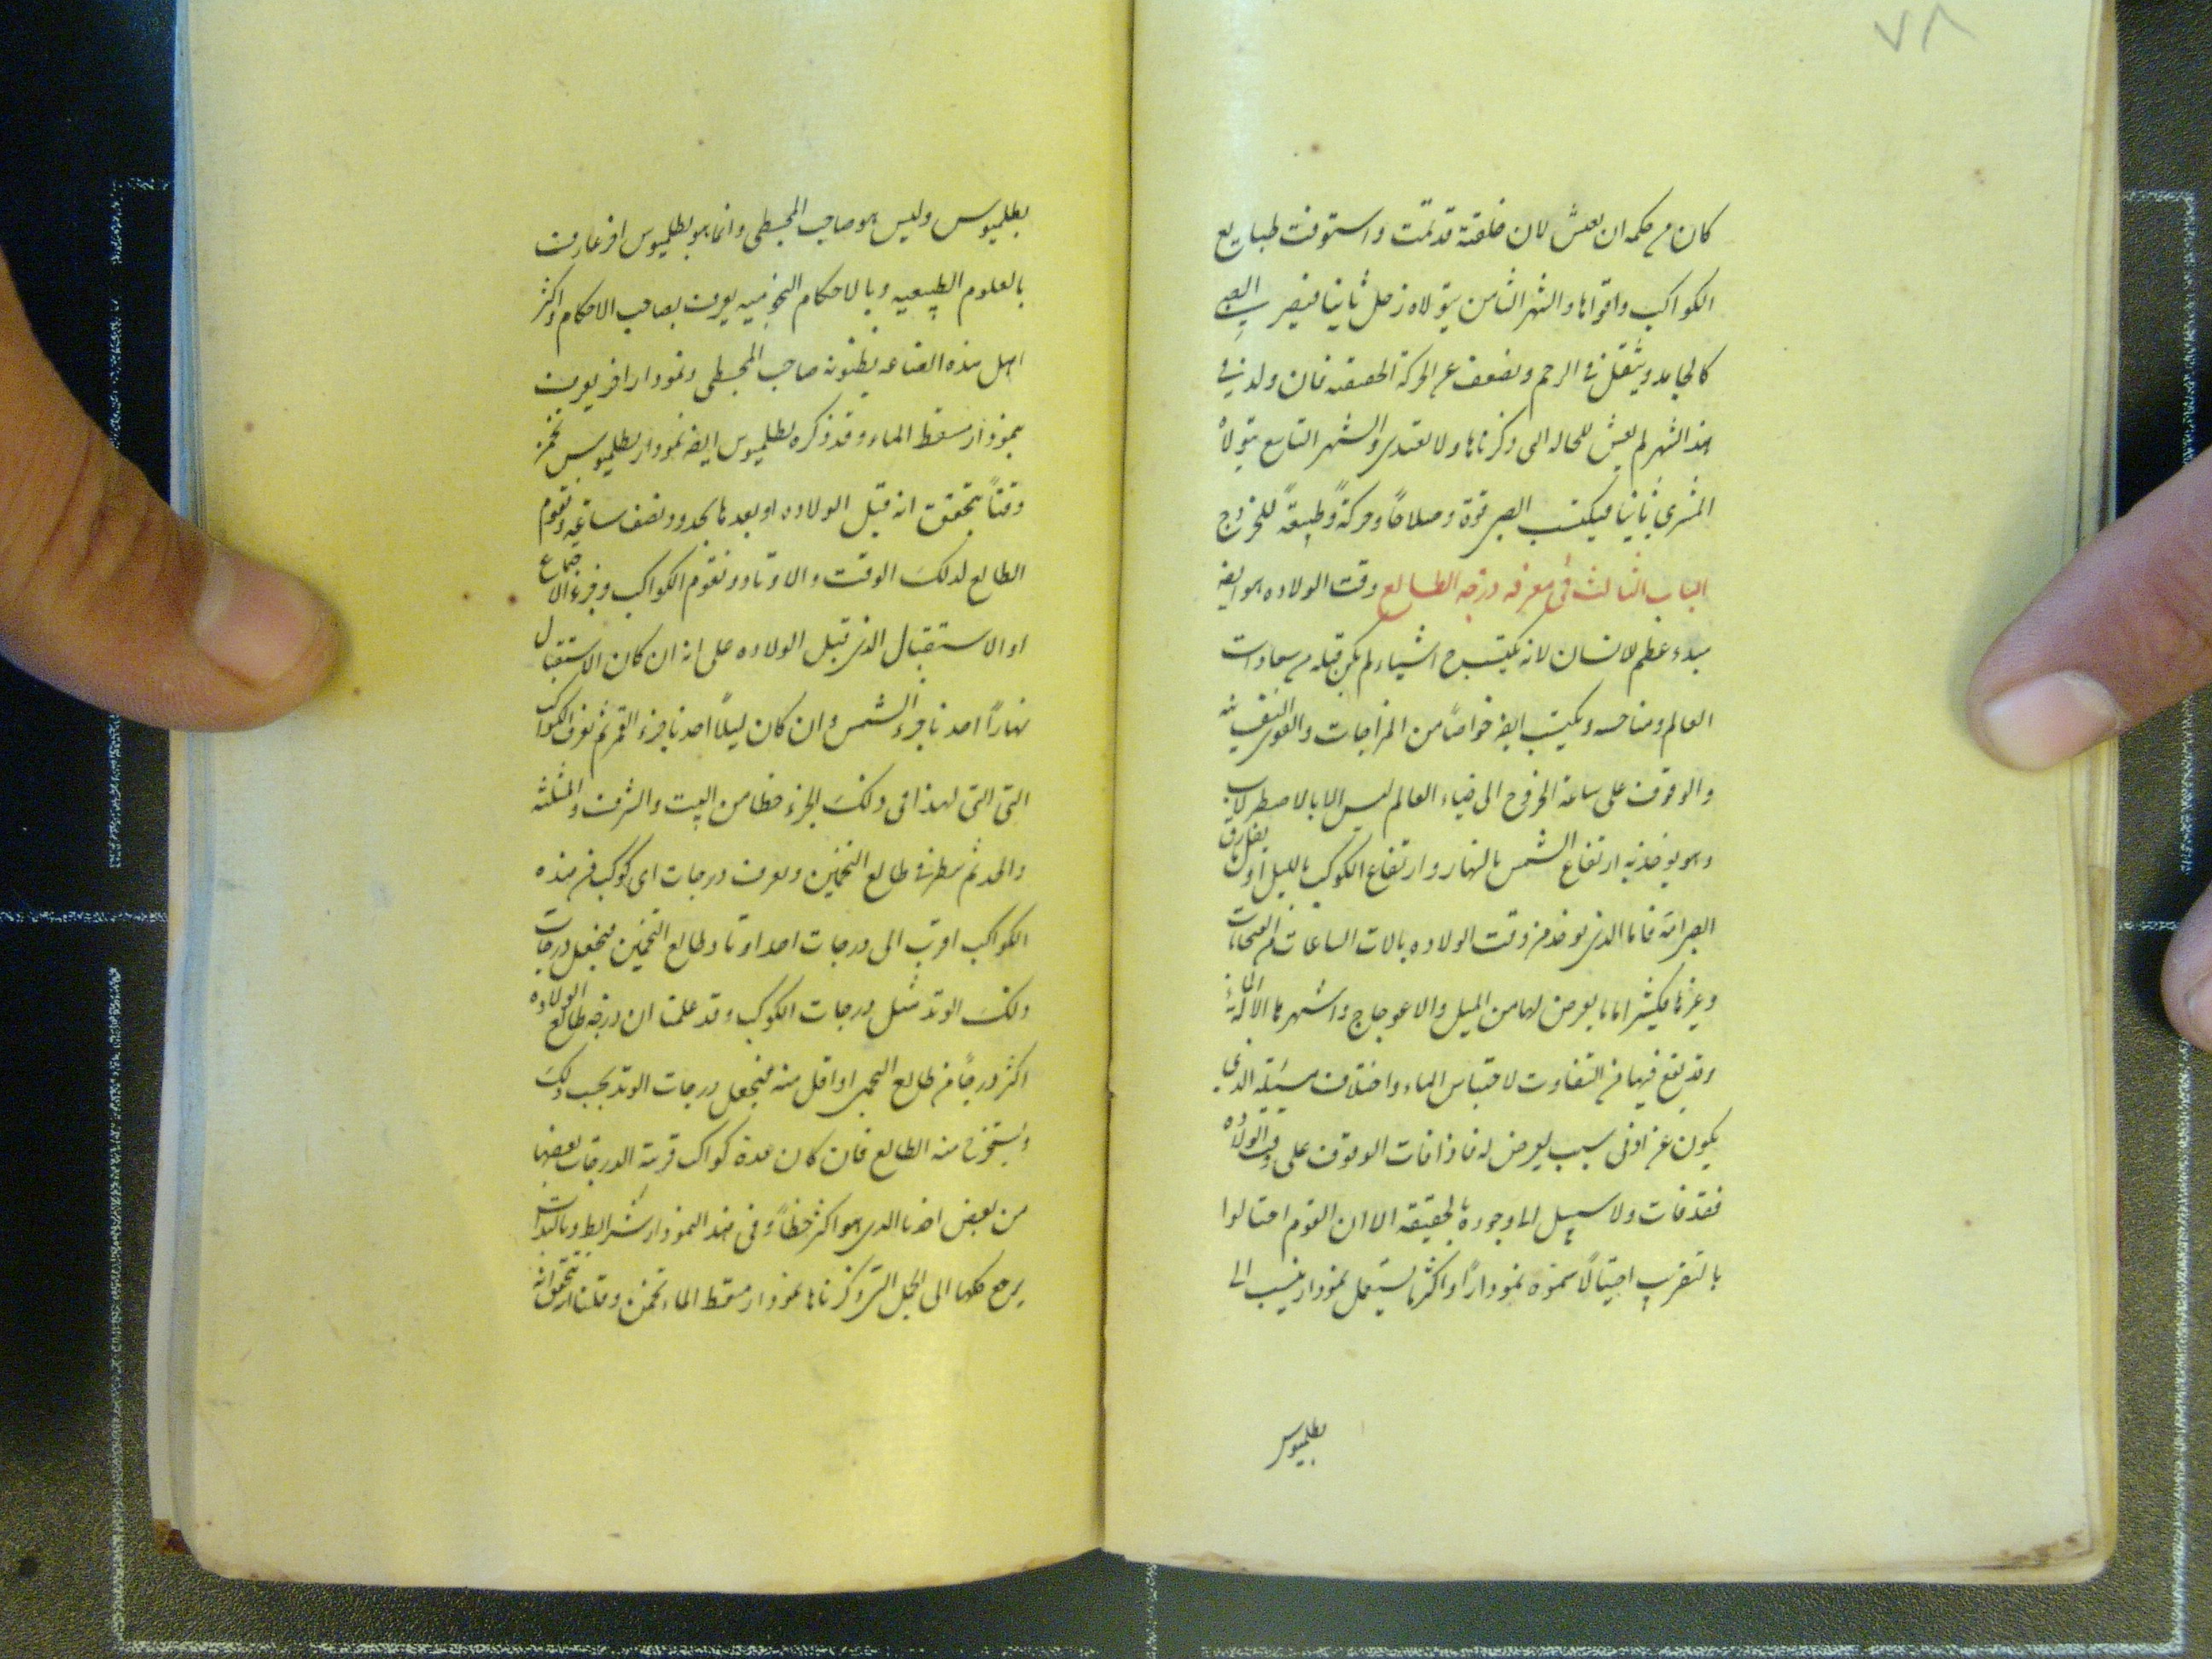 ٧٨
كان من حكمه ان يعش لان خلقته قد تمت واستوفت طبايع
الكواكب واقواها والشهر الثامن يتولاه زحل ثانيا فيصير الصبى
كالجامد ويثقل فى الرحم ويضعف عن الحركة الحقيقه فان ولد فى
هذا الشهر لم يعش للحاله التى ذكرناها ولا يغتدى والشهر التاسع يتولاه
المشرى ثانيا فيكتسب الصبى قوة وصلاحًا وحركةً وطبيعةً للخروج
الباب الثالث فى معرفه درجه الطالع وقت الولاده هو ايضا
مبدء عظيم للانسان لانه يكتسب ح اشياء لم يكن قبله من سعادات
العالم ومناحسه ويكتسب ايضا خواصًا من المزاجات والقوى النفسانيه
والوقوف على ساعة الخروج الى ضياء العالم ليس الا بالاصطرلاب
وهو يوخذ به ارتفاع الشمس بالنهار وارتفاع الكوكب بالليل اول ما يفارق
الصبى امه فاما الذى يوخذ من وقت الولاده بالات الساعات من الفنجانات
وغيرها فكثيرا ما يعرض لها من الميل والاعوجاج واشهرها الالة المائية
وقد يقع فيها من التفاوت لاحتباس الماء واختلاف مسيله الذى
يكون عن ادنى سبب يعرض له فاذا فات الوقوف على وقت الولاده
فقد فات ولا سبيل الى وجوده بالحقيقه الا ان القوم احتالوا
بالتقريب احتيالًا سموه نمودارًا واكثر ما يستعمل نمودار ينسب الى
بطلميوس
بطلميوس وليس هو صاحب المجسطى وانما هو بطلميوس اخر عارف
بالعلوم الطبيعيه وبالاحكام النجوميه يعرف بصاحب الاحكام واكثر
اهل هذه الصناعه يظنونه صاحب المجسطى ونمودار اخر يعرف
بنمودار مسقط الماء وقد ذكره بطلميوس ايضا نمودار بطلميوس نخمن
وقتًا يتحقق انه قبل الولاده او بعدها بحدود نصف ساعه ونقوم
الطالع لذلك الوقت والاوتاد ونقوم الكواكب وجزء الاجتماع
او الاستقبال الذى قبل الولاده على انه ان كان الاستقبال
نهارًا اخذنا جزء الشمس وان كان ليلًا اخذنا جزء القمر ثم نعرف الكواكب
التى التى لها فى ذلك الجزء حظا من البيت والشرف والمثلثه
والحد ثم ننظر فى طالع التخمين ونعرف درجات اى كوكب من هذه
الكواكب اقرب الى درجات احد اوتاد طالع التخمين فنجعل درجات
ذلك الوتد مثل درجات الكوكب وقد علمنا ان درجه طالع الولاده
اكثر درجًا من طالع التخمين او اقل منه فنجعل درجات الوتد بحسب ذلك
ونستخرج منه الطالع فان كان عدة كواكب قريبة الدرجات بعضها
من بعض اخذنا الذى هو اكثر حظًا وفى هذا النمودار شرايط
يرجع كلها الى الجمل التى ذكرناها نمودار مسقط الماء نخمن وقتا نتحقق انه